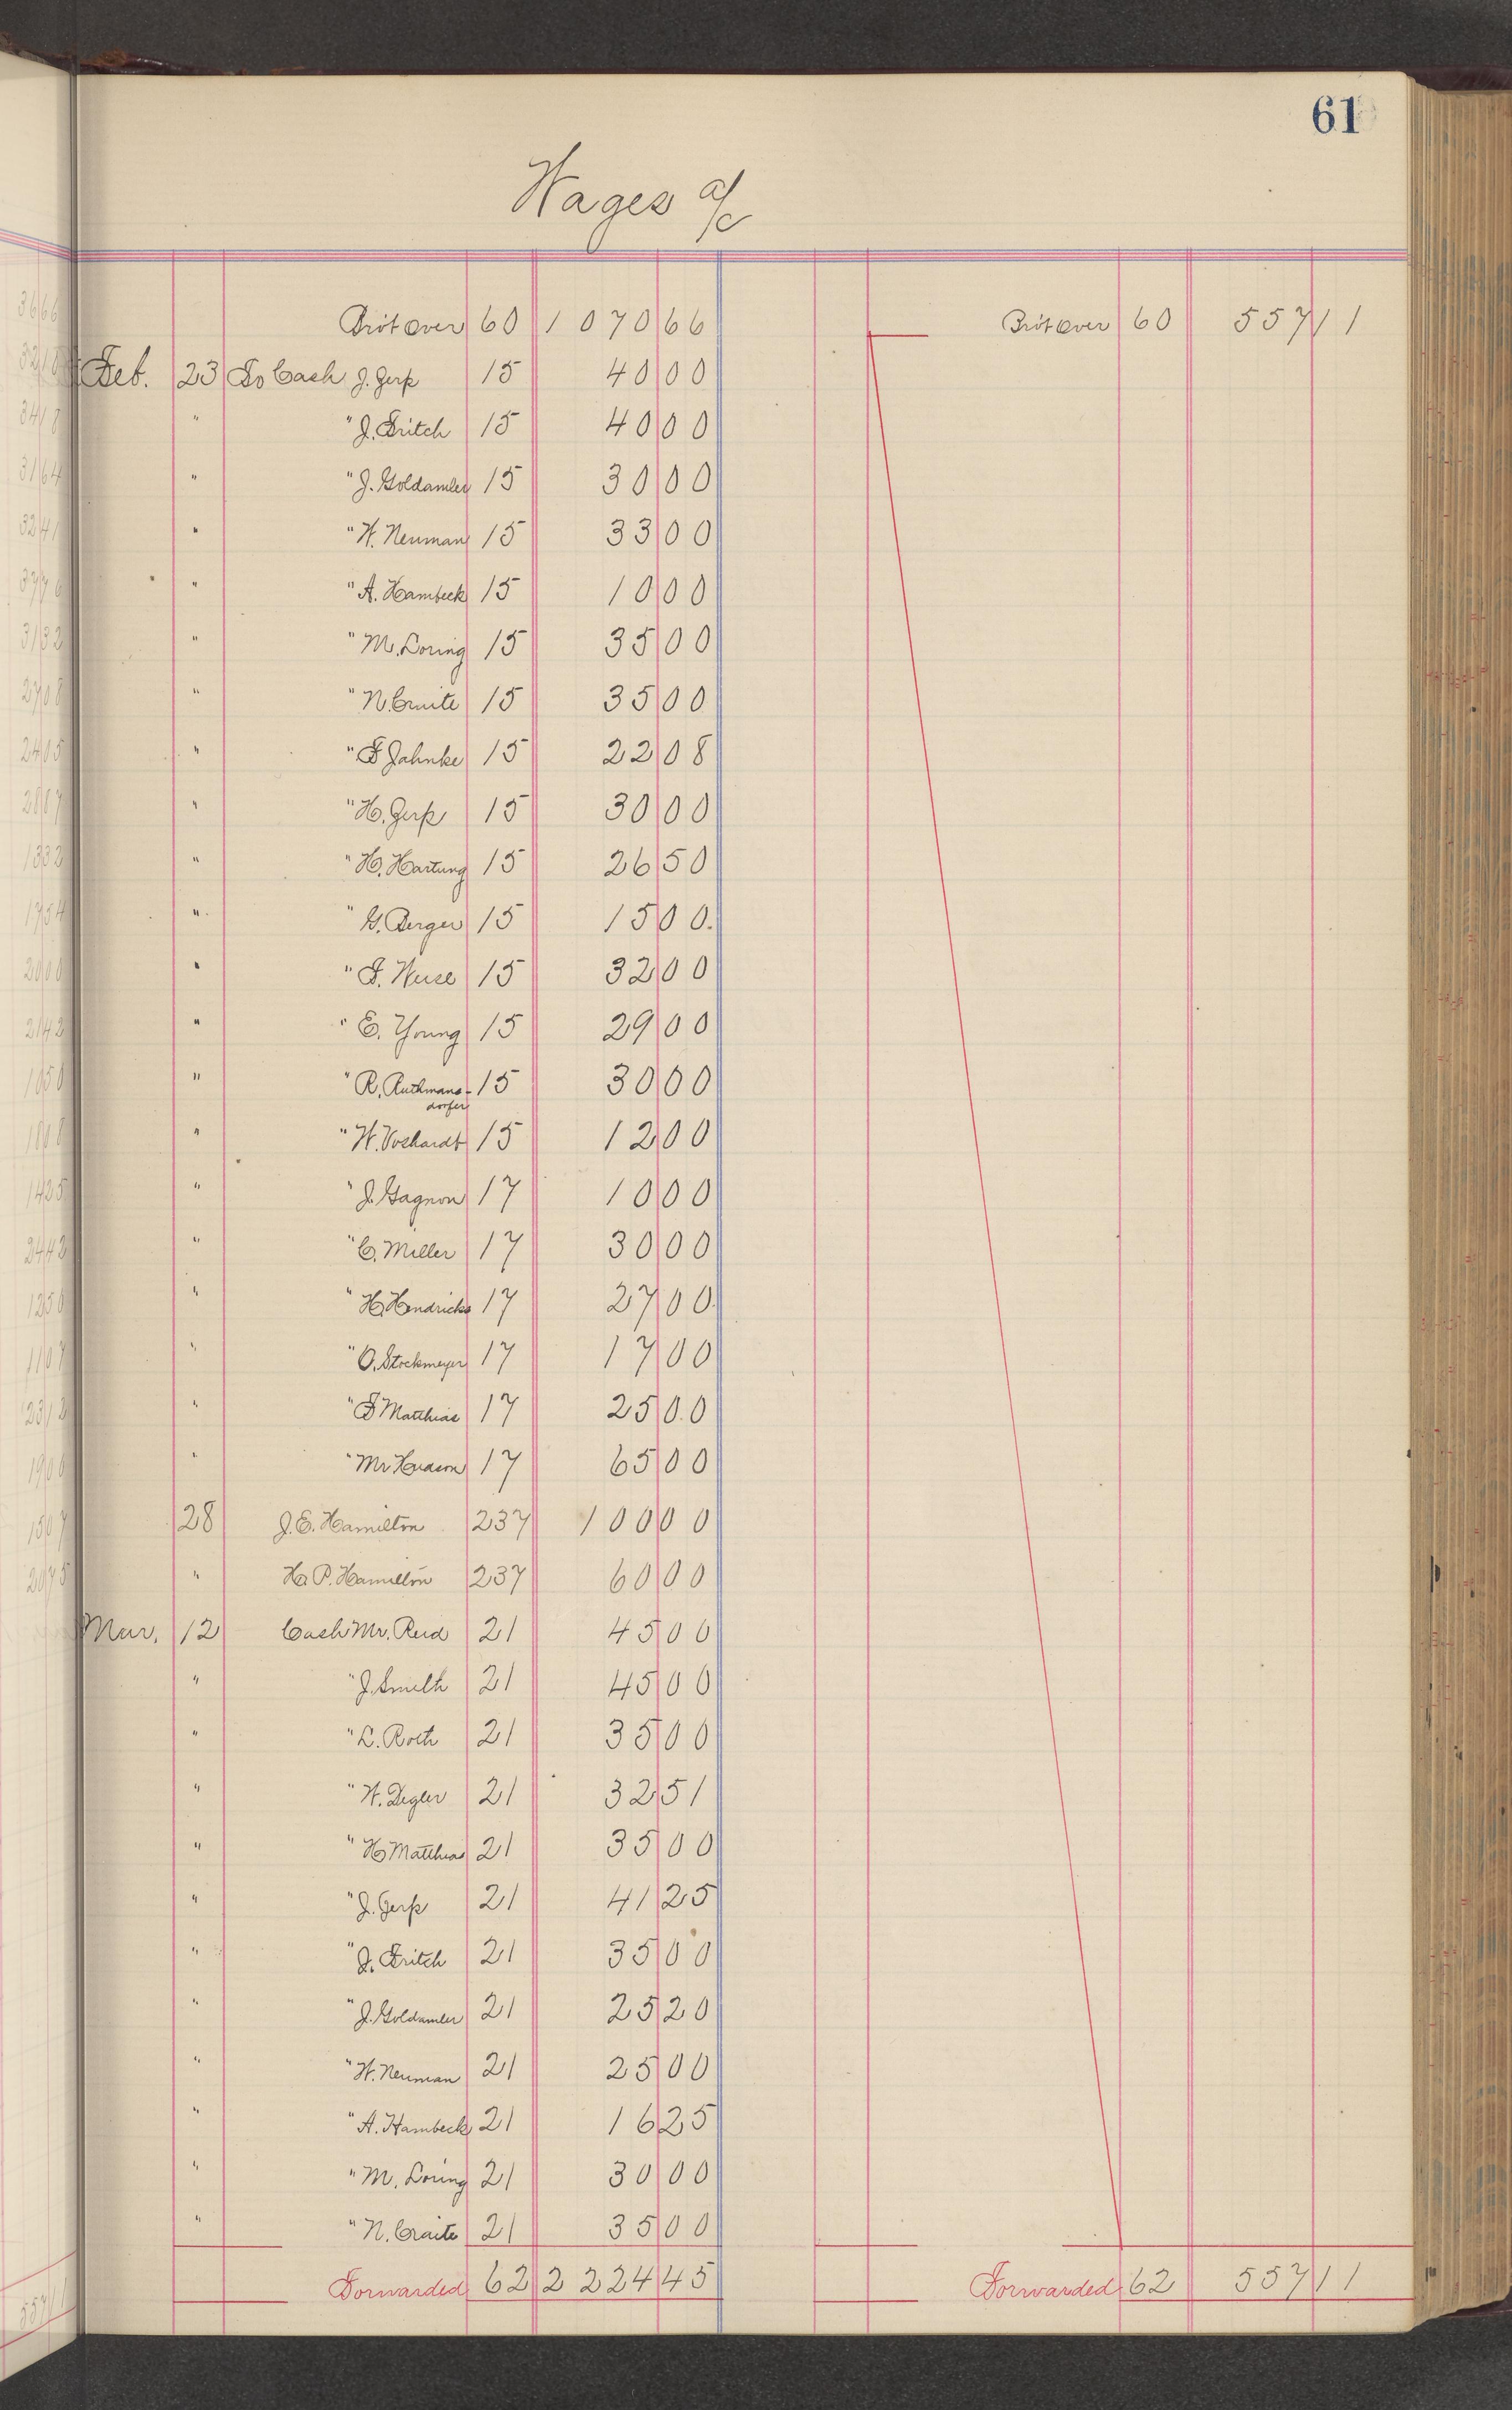 61
Wages a/c
Brôt Over 60 1070 66 Brôt Over 60 557 11
Feb. 23 To Cash J. Gerp 15 40 00
" " J. Fritch 15 40 00
" " J. Goldamler 15 30 00
" " W. Neuman 15 33 00
" " A. Hambeck 15 10 00
" " M. Loring 15 35 00
" " N. Cruite 15 35 00
" " F Jahnke 15 22 08
" " H. Gerp 15 30 00
" " H. Hartung 15 26 50
" " G. Berger 15 15 00.
" " F. Weise 15 32 00
" " E. Young 15 29 00
" " R. Ruthmans- 15 30 00
dorfer
" " W. Voshardt 15 12 00
" " J. Gagnon 17 10 00
" " C. Miller 17 30 00
" " H. Hendricks 17 27 00
" " O. Stockmeyer 17 17 00
" " F Matthias 17 25 00
" " Mr Hudson 17 65 00
28 J. E. Hamilton 237 100 00
" H. P. Hamilton 237 60 00
Mar. 12 Cash Mr. Reid 21 45 00
" " J. Smith 21 45 00
" " L. Roth 21 35 00
" " W. Degler 21 32 51
" " H Matthias 21 35 00
" " J. Gerp 21 41 25
" " J. Fritch 21 35 00
" " J. Goldamler 21 25 20
" " W. Neuman 21 25 00
" " A. Hambeck 21 16 25
" " M. Loring 21 30 00
" " N. Craite 21 35 00
Forwarded 62 2 224 45 Forwarded 62 557 11